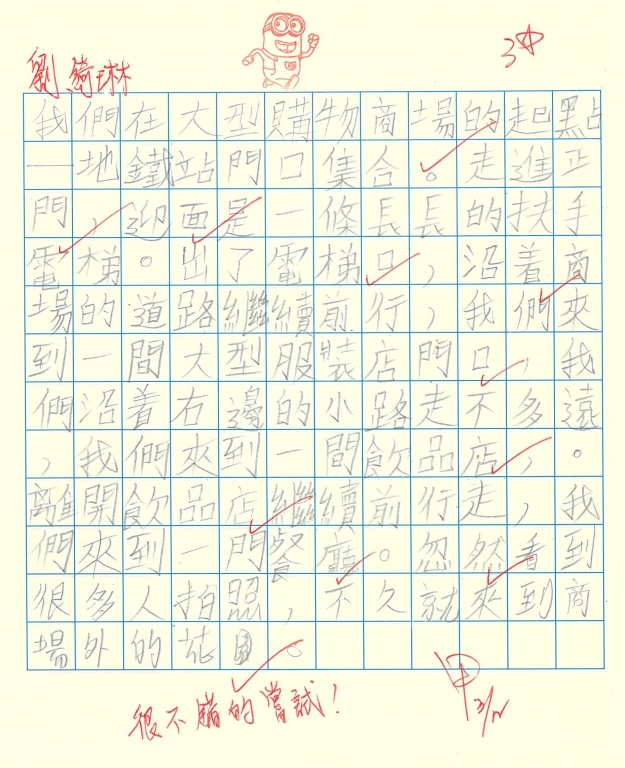 劉綺琳
我們在大型購物商場的起點
—地鐵站門口集合。走進正
門，迎面是一條長長的扶手
電梯。出了電梯口，沿着商
場的道路繼續前行，我們來
到一間大型服裝店門口，我
們沿着右邊的小路走不多遠
，我們來到一間飲品店，。
離開飲品店繼續前行走，我
們來到一門餐廳。忽然看到
很多人拍照，不久就來到商
場外的花園。
很不錯的嘗試！
甲